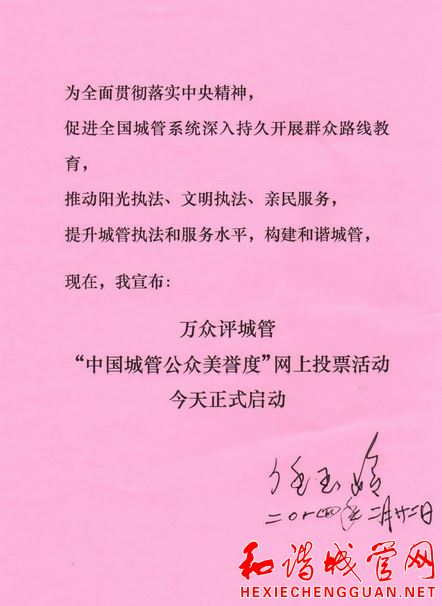 为全面贯彻落实中央精神，
促进全国城管系统深入持久开展群众路线教
育，
推动阳光执法、文明执法、亲民服务，
提升城管执法和服务水平，构建和谐城管，
现在，我宣布：
万众评城管
“中国城管公众美誉度”网上投票活动
今天正式启动
任玉岭
二〇一四年二月廿二日
和谐城管网
HEXIECHENGGUAN.NET